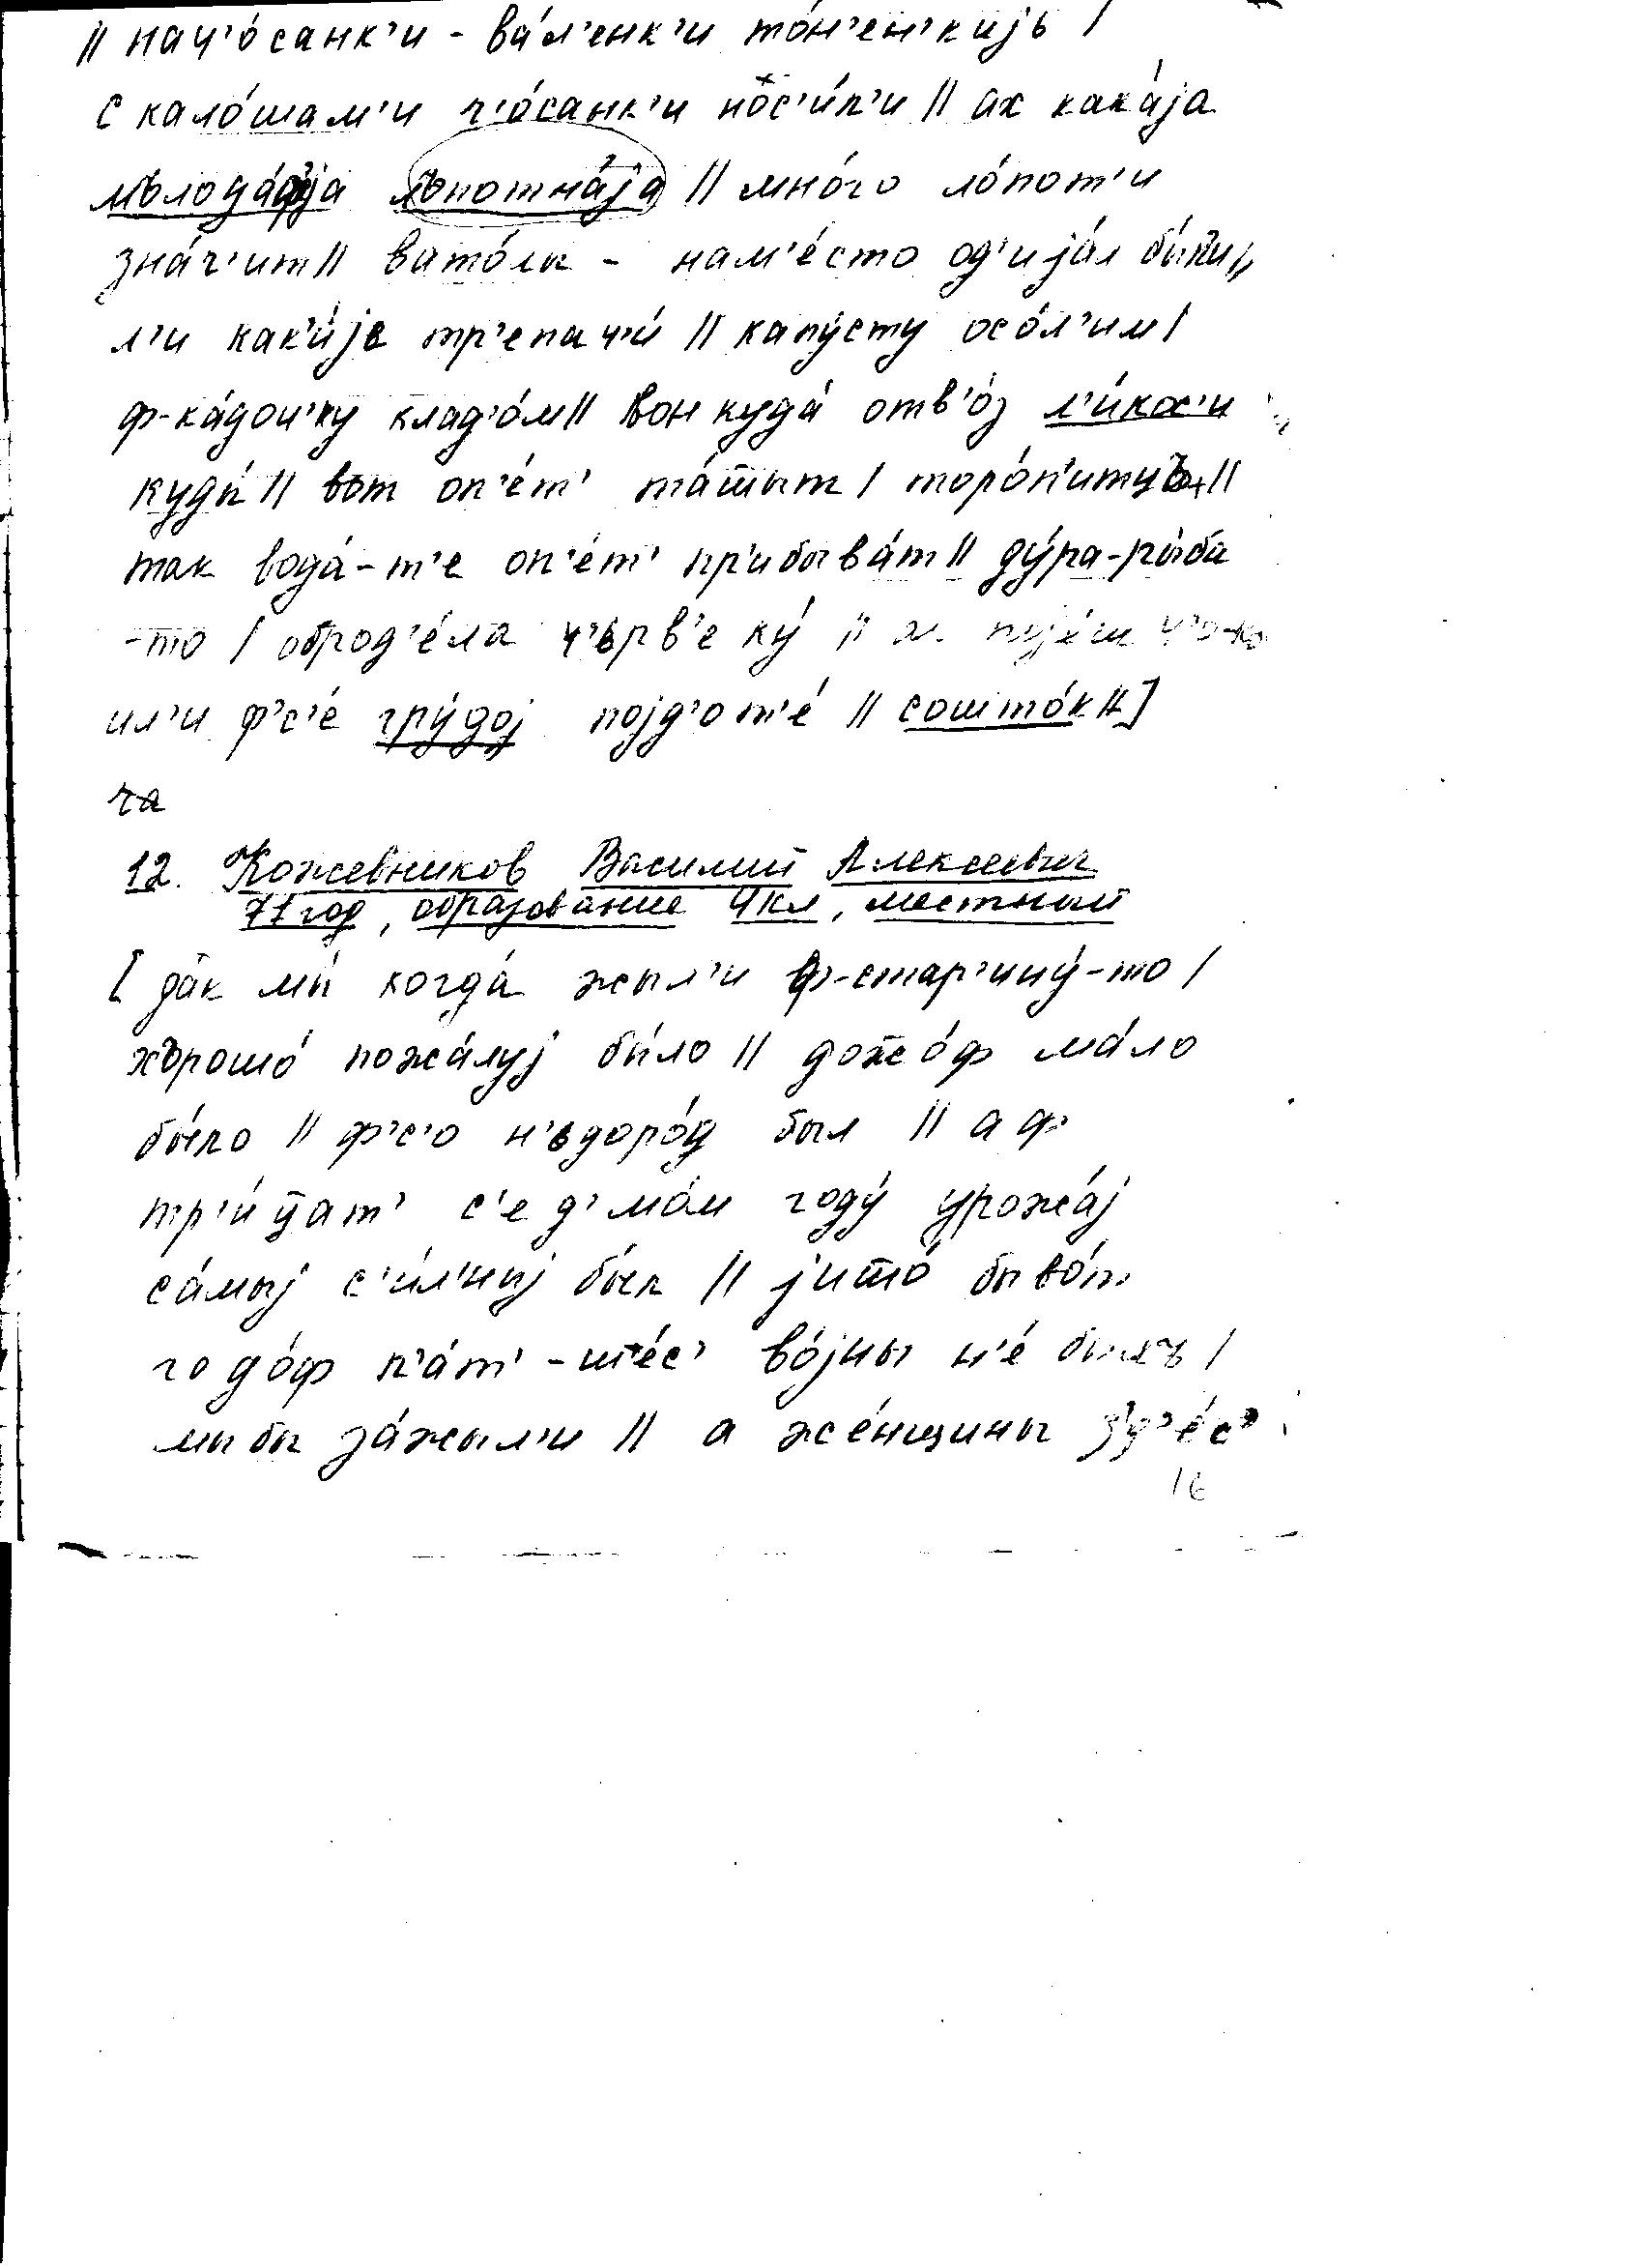 // нач'о́санк'и - ва́л'енк'и то́н'ен'кијь /
с кало́шам'и ч'о́санк'и нос'и́л'и // ах кака́ја
мълода́ја лъпотна́ја // мно́го ло́пот'и
зна́ч'ит // вато́лы - нам'е́сто од'ија́л бы́ли //
л'и как'и́је тр'епач'и́ // капу́сту осо́л'им /
ф-ка́доч'ку клад'о́м // вон куда́ отв'о́з л'и́кох'и
куды́ // вот оп'е́т' та́шшыт / торо́п'итцъ //
так вода́-т'е оп'е́т' пр'ибыва́т // ду́ра-ры́ба
-то / оброд'е́ла ч'ьрв'еку́ //
ил'и ф'с'е́ гру́дој појд'от'е́ // сошто́к // ]
ча
12. Кожевников Василий Алексеевич
71 год, образование 4кл, местный
[ да́к мы́ когда́ жыл'и ф-стар'ину́-то /
хърошо́ пожа́луј бы́ло // дожжо́ф ма́ло
бы́ло // ф'с'о н'ьдоро́д был // а ф
тр'и́ццат' с'ед'мо́м году́ урожа́ј
са́мыј с'и́л'ныј бы́л // јишшо́ бы во́т
годо́ф п'а́т'-ше́с' во́јны н'е́ былъ /
мы бы за́жыл'и // а же́нщины зд'е́с'
16